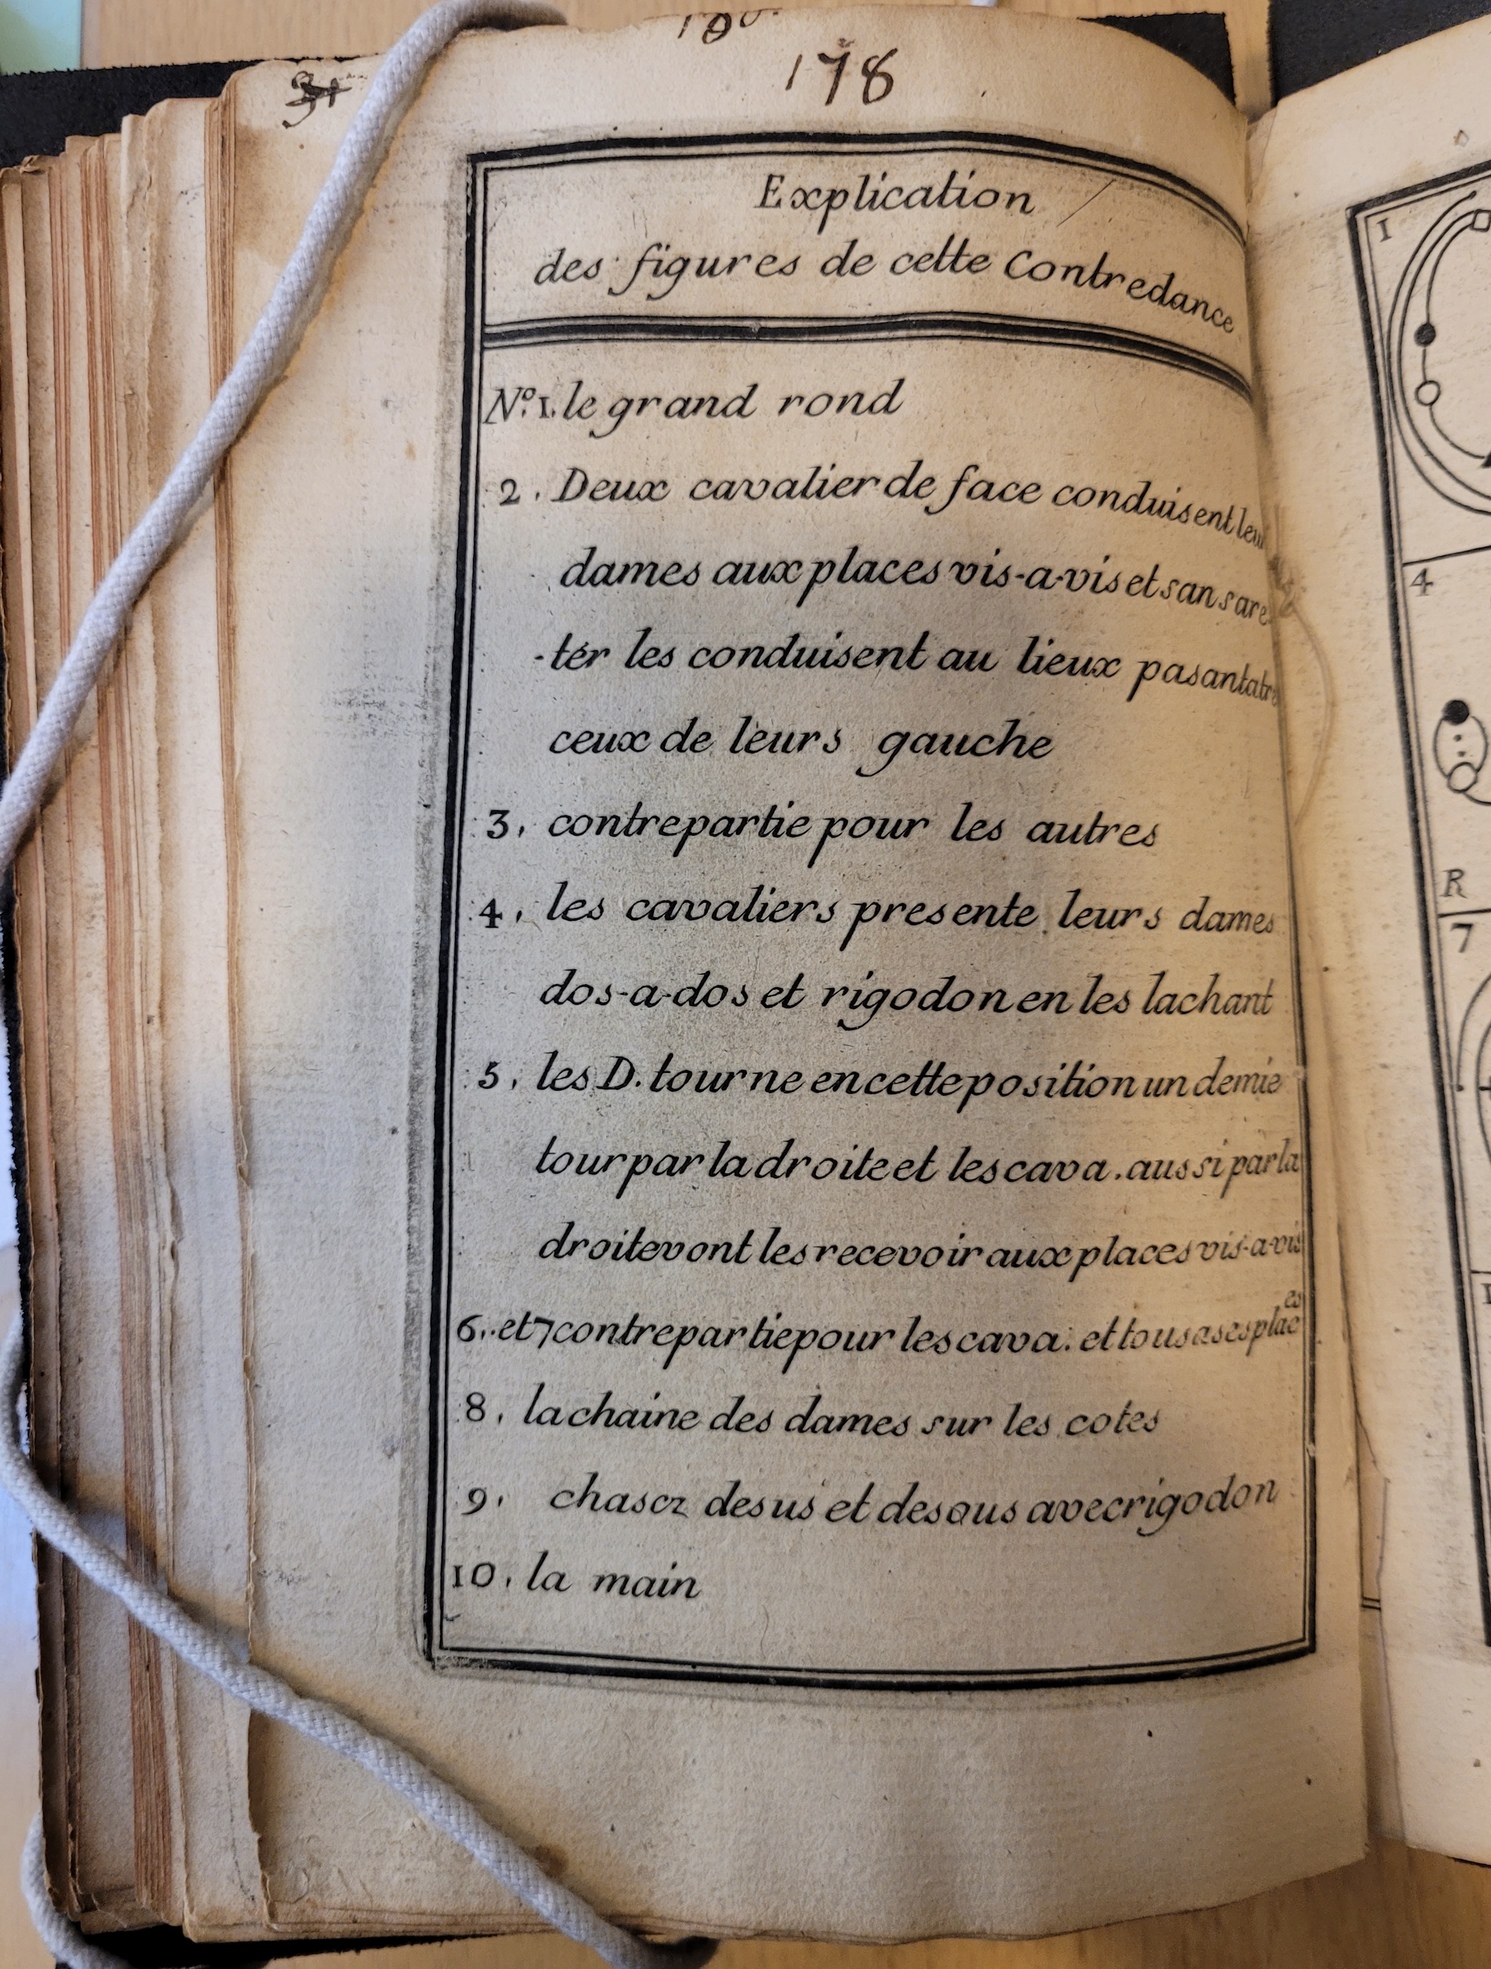 178
Explication
des figures de cette Contredance
N.º 1. le grand rond
2. Deux cavalier de face conduisent
dames aux places vis-a-vis et sans are
-tér les conduisent au lieux pasant
ceux de leurs gauche
3. contrepartie pour les autres
4. les cavaliers presente leurs dames
dos-a-dos et rigodon en les lachant
5. les D. tourne en cette position un demie
tour par la droite et les cava. aussi par la
droite vont les recevoir aux places vis-a-vis
6. et 7 contrepartie pour les cava. et tous a ses places
8. la chaine des dames sur les cotes
9. chascz desus et desous avec rigodon
10. la main
1
4
R
7